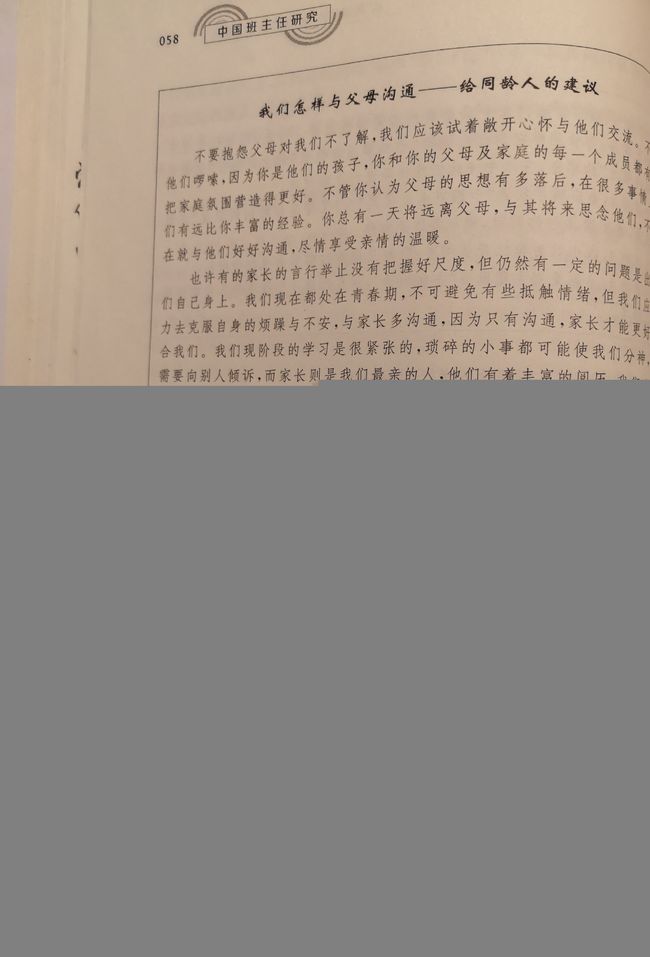 058
中国班主任研究
我们怎样与父母沟通——给同龄人的建议
不要抱怨父母对我们不了解,我们应该试着敞开心怀与他们交流。不
他们啰嗦,因为你是他们的孩子,你和你的父母及家庭的每一个成员都
把家庭氛围营造得更好。不管你认为父母的思想有多落后,在很多事情
们有远比你丰富的经验。你总有一天将远离父母,与其将来思念他们,不
在就与他们好好沟通,尽情享受亲情的温暖。
也许有的家长的言行举止没有把握好尺度,但仍然有一定的问题是出
们自己身上。我们现在都处在青春期,不可避免有些抵触情绪,但我们应
力去克服自身的烦躁与不安,与家长多沟通,因为只有沟通,家长才能更好
合我们。我们现阶段的学习是很紧张的,琐碎的小事都可能使我们分神,
需要向别人倾诉,而家长则是我们最亲的人,他们有着丰富的阅历